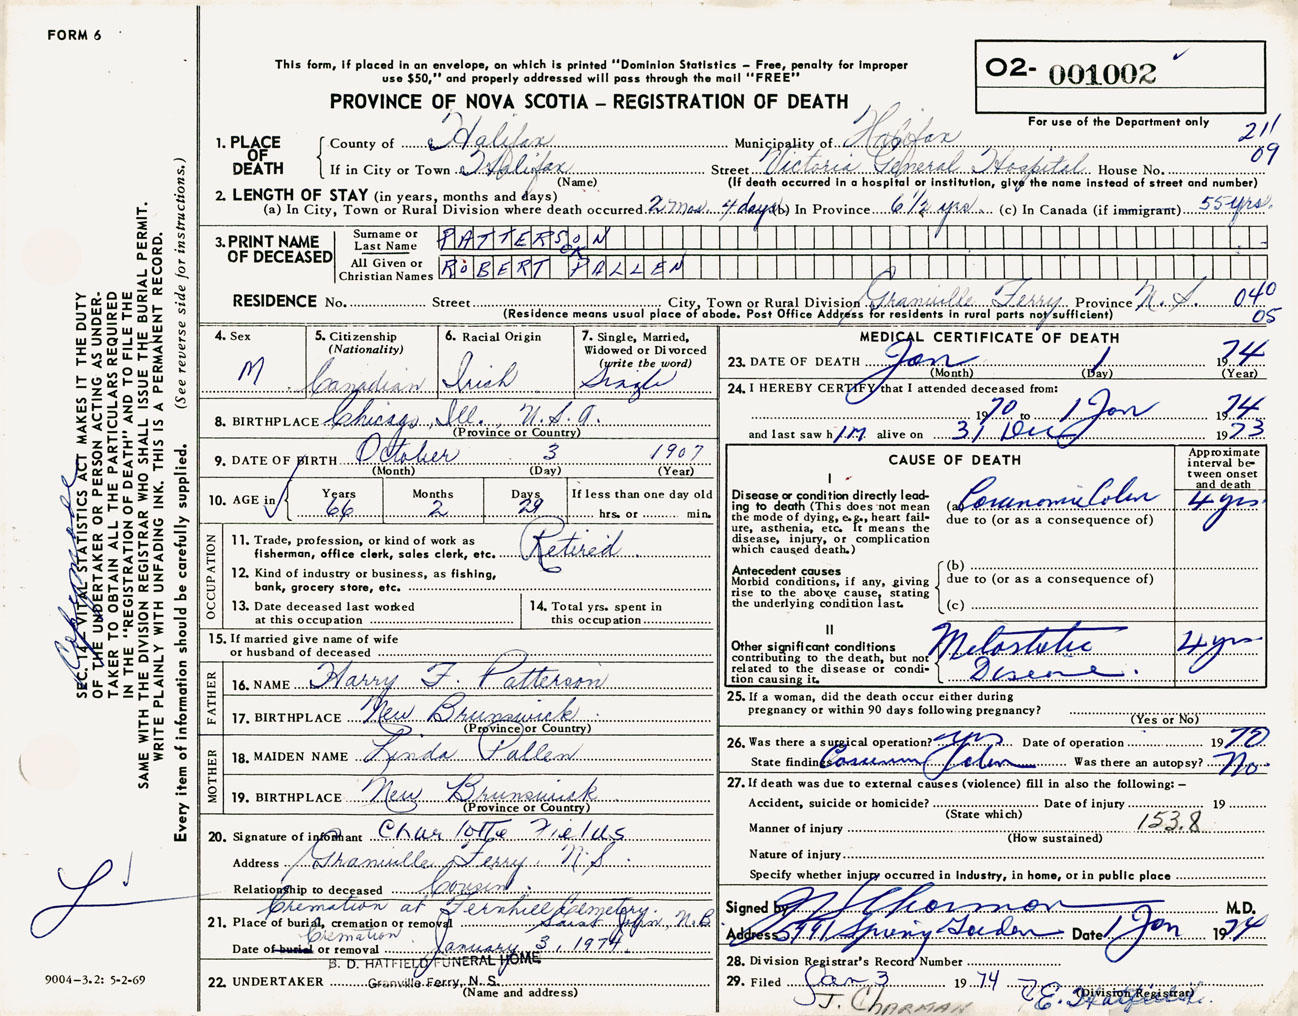 FORM 6
This form, if placed in an envelope, on which is printed "Dominion Statistics – Free, penalty for improper
use $50," and properly addressed will pass through the mail "FREE"
PROVINCE OF NOVA SCOTIA – REGISTRATION OF DEATH
O2- 001002
For use of the Department only
211
09
1. PLACE OF DEATH
County of Halifax Municipality of Halifax
If in City or Town Halifax Street Victoria General Hospital House No.
(Name) (If death occurred in a hospital or institution, give the name instead of street and number)
2. LENGTH OF STAY (in years, months and days)
(a) In City, Town or Rural Division where death occurred 2 mos. 4 days (b) In Province 6 1/2 yrs (c) In Canada (if immigrant) 55 yrs.
3. PRINT NAME OF DECEASED
Surname or Last Name PATTERSON
OK
All Given or Christian Names ROBERT PALLEN
RESIDENCE No. Street City, Town or Rural Division Granville Ferry Province N.S. 040
05
(Residence means usual place of abode. Post Office Address for residents in rural parts not sufficient)
4. Sex M
5. Citizenship (Nationality) Canadian
6. Racial Origin Irish
7. Single, Married, Widowed or Divorced (write the word) Single
8. BIRTHPLACE Chicago, Ill., U.S.A.
(Province or Country)
9. DATE OF BIRTH October 3 1907
(Month) (Day) (Year)
10. AGE in Years 66 Months 2 Days 29 If less than one day old
hrs. or min.
OCCUPATION
11. Trade, profession, or kind of work as
fisherman, office clerk, sales clerk, etc. Retired
12. Kind of industry or business, as fishing,
bank, grocery store, etc.
13. Date deceased last worked
at this occupation
14. Total yrs. spent in
this occupation
15. If married give name of wife
or husband of deceased
FATHER
16. NAME Harry F. Patterson
17. BIRTHPLACE New Brunswick
(Province or Country)
MOTHER
18. MAIDEN NAME Linda Pallen
19. BIRTHPLACE New Brunswick
(Province or Country)
20. Signature of informant Charlotte Fields
Address Granville Ferry, N.S.
Relationship to deceased Cousin
Cremation at Fernhill Cemetery
21. Place of burial, cremation or removal Saint John, N.B.
Cremation
Date of burial or removal January 3, 1974
B. D. HATFIELD FUNERAL HOME
22. UNDERTAKER Granville Ferry, N. S.
(Name and address)
MEDICAL CERTIFICATE OF DEATH
23. DATE OF DEATH Jan 1 1974
(Month) (Day) (Year)
24. I HEREBY CERTIFY that I attended deceased from:
1970 to 1 Jan 1974
and last saw him alive on 31 Dec 1973
CAUSE OF DEATH
Approximate interval between onset and death
I
Disease or condition directly leading to death (This does not mean
the mode of dying, e.g., heart failure, asthenia, etc. It means the
disease, injury, or complication
which caused death.)
(a) Carcinoma Colon 4 yrs
due to (or as a consequence of)
Antecedent causes
Morbid conditions, if any, giving
rise to the above cause, stating
the underlying condition last.
(b)
due to (or as a consequence of)
(c)
II
Other significant conditions
contributing to the death, but not
related to the disease or condition causing it.
Metastatic 4 yrs
Disease.
25. If a woman, did the death occur either during
pregnancy or within 90 days following pregnancy?
(Yes or No)
26. Was there a surgical operation? yes Date of operation 1970
State findings Carcinoma Colon Was there an autopsy? No.
27. If death was due to external causes (violence) fill in also the following: –
Accident, suicide or homicide? Date of injury 19
(State which)
Manner of injury 153.8
(How sustained)
Nature of injury
Specify whether injury occurred in industry, in home, or in public place
Signed by J Charman M.D.
Address 5991 Spring Garden Date 1 Jan 1974
28. Division Registrar's Record Number
29. Filed Jan 3 1974 E. Hatfield
(Division Registrar)
J. CHARMAN
SEC. 14–VITAL STATISTICS ACT MAKES IT THE DUTY
OF THE UNDERTAKER OR PERSON ACTING AS UNDER-
TAKER TO OBTAIN ALL THE PARTICULARS REQUIRED
IN THE "REGISTRATION OF DEATH" AND TO FILE THE
SAME WITH THE DIVISION REGISTRAR WHO SHALL ISSUE THE BURIAL PERMIT.
WRITE PLAINLY WITH UNFADING INK. THIS IS A PERMANENT RECORD.
Every item of information should be carefully supplied. (See reverse side for instructions.)
9004–3.2: 5-2-69